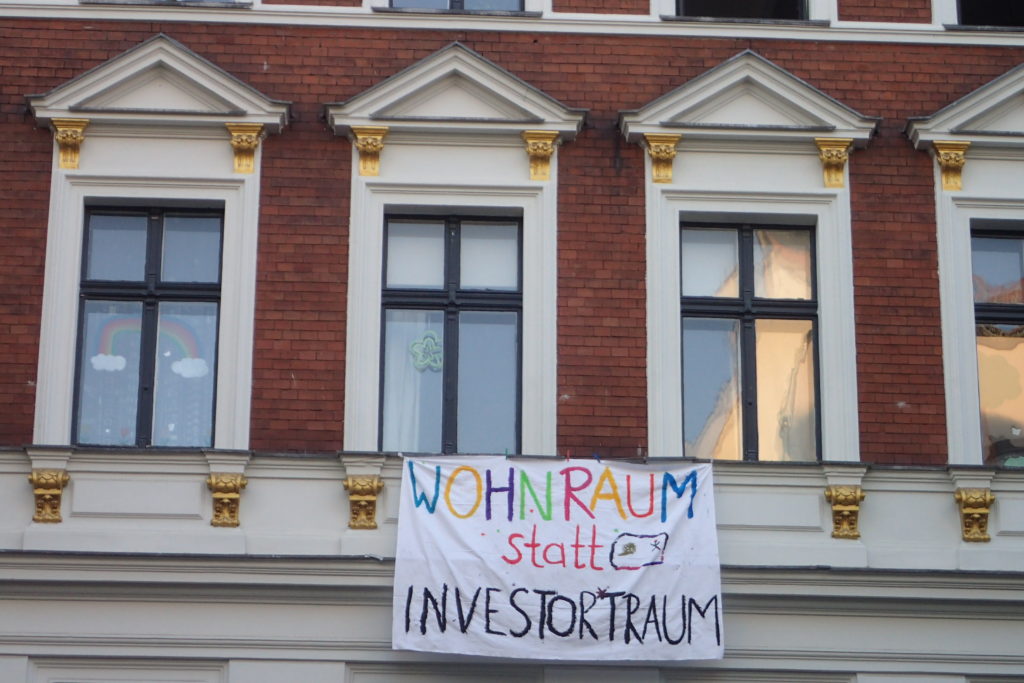 WOHNRAUM
statt
INVESTORTRAUM